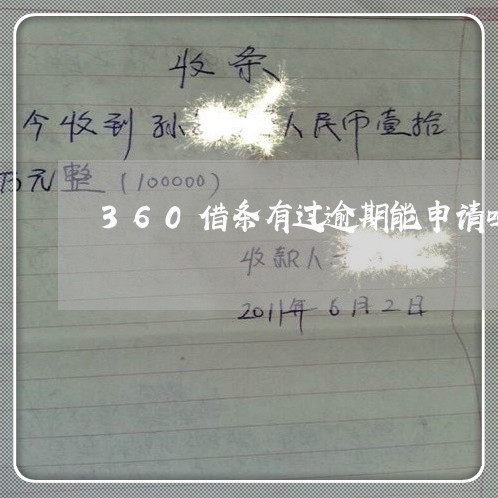 收条
今收到孙 人民币壹拾
万元整（100000）
360借条有过逾期能申请
收款人
2011年6月2日